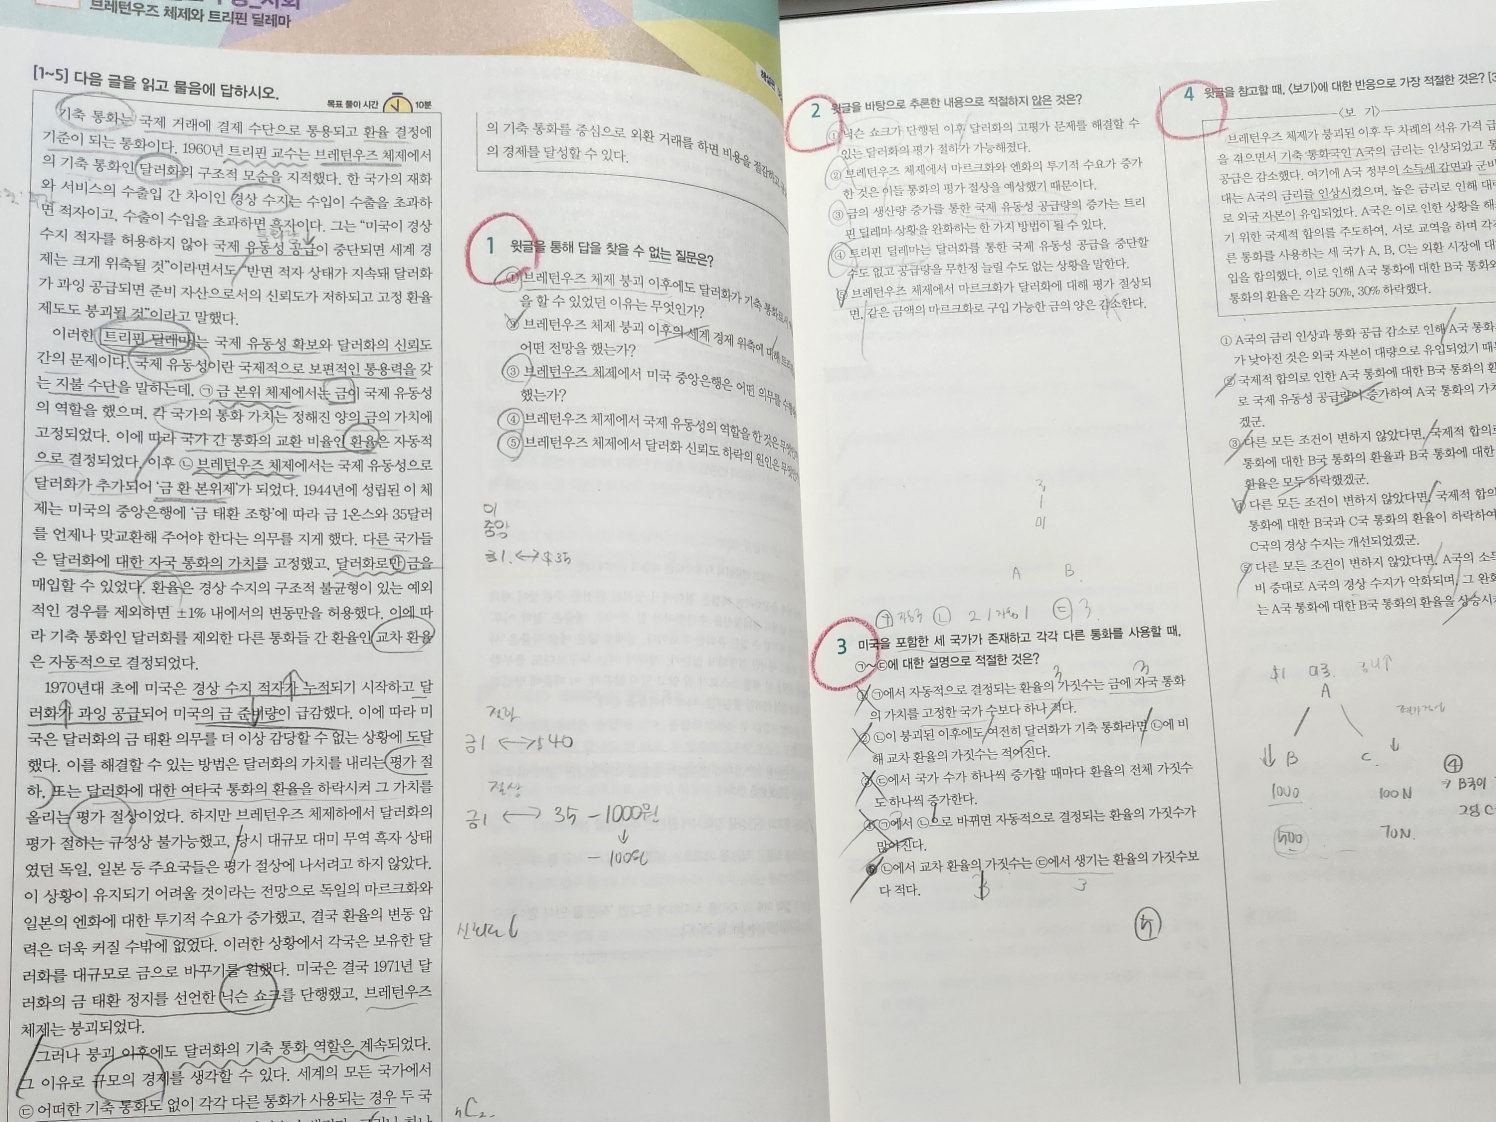 브레턴우즈 체제와 트리핀 딜레마
[1~5] 다음 글을 읽고 물음에 답하시오.
목표 풀이 시간 10분
기축 통화는 국제 거래에 결제 수단으로 통용되고 환율 결정에
기준이 되는 통화이다. 1960년 트리핀 교수는 브레턴우즈 체제에서
의 기축 통화인 달러화의 구조적 모순을 지적했다. 한 국가의 재화
와 서비스의 수출입 간 차이인 경상 수지는 수입이 수출을 초과하
면 적자이고, 수출이 수입을 초과하면 흑자이다. 그는 “미국이 경상
수지 적자를 허용하지 않아 국제 유동성 공급이 중단되면 세계 경
제는 크게 위축될 것”이라면서도 “반면 적자 상태가 지속돼 달러화
가 과잉 공급되면 준비 자산으로서의 신뢰도가 저하되고 고정 환율
제도도 붕괴될 것”이라고 말했다.
이러한 트리핀 딜레마는 국제 유동성 확보와 달러화의 신뢰도
간의 문제이다. 국제 유동성이란 국제적으로 보편적인 통용력을 갖
는 지불 수단을 말하는데, ㉠ 금 본위 체제에서는 금이 국제 유동성
의 역할을 했으며, 각 국가의 통화 가치는 정해진 양의 금의 가치에
고정되었다. 이에 따라 국가 간 통화의 교환 비율인 환율은 자동적
으로 결정되었다. 이후 ㉡ 브레턴우즈 체제에서는 국제 유동성으로
달러화가 추가되어 ‘금 환 본위제’가 되었다. 1944년에 성립된 이 체
제는 미국의 중앙은행에 ‘금 태환 조항’에 따라 금 1온스와 35달러
를 언제나 맞교환해 주어야 한다는 의무를 지게 했다. 다른 국가들
은 달러화에 대한 자국 통화의 가치를 고정했고, 달러화로만 금을
매입할 수 있었다. 환율은 경상 수지의 구조적 불균형이 있는 예외
적인 경우를 제외하면 ±1% 내에서의 변동만을 허용했다. 이에 따
라 기축 통화인 달러화를 제외한 다른 통화들 간 환율인 교차 환율
은 자동적으로 결정되었다.
1970년대 초에 미국은 경상 수지 적자가 누적되기 시작하고 달
러화가 과잉 공급되어 미국의 금 준비량이 급감했다. 이에 따라 미
국은 달러화의 금 태환 의무를 더 이상 감당할 수 없는 상황에 도달
했다. 이를 해결할 수 있는 방법은 달러화의 가치를 내리는 평가 절
하, 또는 달러화에 대한 여타국 통화의 환율을 하락시켜 그 가치를
올리는 평가 절상이었다. 하지만 브레턴우즈 체제하에서 달러화의
평가 절하는 규정상 불가능했고, 당시 대규모 대미 무역 흑자 상태
였던 독일, 일본 등 주요국들은 평가 절상에 나서려고 하지 않았다.
이 상황이 유지되기 어려울 것이라는 전망으로 독일의 마르크화와
일본의 엔화에 대한 투기적 수요가 증가했고, 결국 환율의 변동 압
력은 더욱 커질 수밖에 없었다. 이러한 상황에서 각국은 보유한 달
러화를 대규모로 금으로 바꾸기를 원했다. 미국은 결국 1971년 달
러화의 금 태환 정지를 선언한 닉슨 쇼크를 단행했고, 브레턴우즈
체제는 붕괴되었다.
그러나 붕괴 이후에도 달러화의 기축 통화 역할은 계속되었다.
그 이유로 규모의 경제를 생각할 수 있다. 세계의 모든 국가에서
㉢ 어떠한 기축 통화도 없이 각각 다른 통화가 사용되는 경우 두 국
의 기축 통화를 중심으로 외환 거래를 하면 비용을 절감하고
의 경제를 달성할 수 있다.
1 윗글을 통해 답을 찾을 수 없는 질문은?
① 브레턴우즈 체제 붕괴 이후에도 달러화가 기축 통화로서
을 할 수 있었던 이유는 무엇인가?
② 브레턴우즈 체제 붕괴 이후의 세계 경제 위축에 대해
어떤 전망을 했는가?
③ 브레턴우즈 체제에서 미국 중앙은행은 어떤 의무를
했는가?
④ 브레턴우즈 체제에서 국제 유동성의 역할을 한 것은
⑤ 브레턴우즈 체제에서 달러화 신뢰도 하락의 원인은
미
중앙
금1. ↔ $35
절하
금1 ↔ $40
절상
금1 ↔ 35 – 1000원
↓
– 100원
2 윗글을 바탕으로 추론한 내용으로 적절하지 않은 것은?
① 닉슨 쇼크가 단행된 이후 달러화의 고평가 문제를 해결할 수
있는 달러화의 평가 절하가 가능해졌다.
② 브레턴우즈 체제에서 마르크화와 엔화의 투기적 수요가 증가
한 것은 이들 통화의 평가 절상을 예상했기 때문이다.
③ 금의 생산량 증가를 통한 국제 유동성 공급량의 증가는 트리
핀 딜레마 상황을 완화하는 한 가지 방법이 될 수 있다.
④ 트리핀 딜레마는 달러화를 통한 국제 유동성 공급을 중단할
수도 없고 공급량을 무한정 늘릴 수도 없는 상황을 말한다.
⑤ 브레턴우즈 체제에서 마르크화가 달러화에 대해 평가 절상되
면, 같은 금액의 마르크화로 구입 가능한 금의 양은 감소한다.
금
미
A B
3 미국을 포함한 세 국가가 존재하고 각각 다른 통화를 사용할 때,
㉠~㉢에 대한 설명으로 적절한 것은?
① ㉠에서 자동적으로 결정되는 환율의 가짓수는 금에 자국 통화
의 가치를 고정한 국가 수보다 하나 적다.
② ㉡이 붕괴된 이후에도 여전히 달러화가 기축 통화라면 ㉡에 비
해 교차 환율의 가짓수는 적어진다.
③ ㉢에서 국가 수가 하나씩 증가할 때마다 환율의 전체 가짓수
도 하나씩 증가한다.
④ ㉠에서 ㉡으로 바뀌면 자동적으로 결정되는 환율의 가짓수가
많아진다.
⑤ ㉡에서 교차 환율의 가짓수는 ㉢에서 생기는 환율의 가짓수보
다 적다.
3
4 윗글을 참고할 때, 〈보기〉에 대한 반응으로 가장 적절한 것은? [3
〈보 기〉
브레턴우즈 체제가 붕괴된 이후 두 차례의 석유 가격 급
을 겪으면서 기축 통화국인 A국의 금리는 인상되었고 통
공급은 감소했다. 여기에 A국 정부의 소득세 감면과 군비
대는 A국의 금리를 인상시켰으며, 높은 금리로 인해 대량
로 외국 자본이 유입되었다. A국은 이로 인한 상황을 해
기 위한 국제적 합의를 주도하여, 서로 교역을 하며 각각
른 통화를 사용하는 세 국가 A, B, C는 외환 시장에 대
입을 합의했다. 이로 인해 A국 통화에 대한 B국 통화와
통화의 환율은 각각 50%, 30% 하락했다.
① A국의 금리 인상과 통화 공급 감소로 인해 A국 통화
가 낮아진 것은 외국 자본이 대량으로 유입되었기 때문
② 국제적 합의로 인한 A국 통화에 대한 B국 통화의 환
로 국제 유동성 공급량이 증가하여 A국 통화의 가치
겠군.
③ 다른 모든 조건이 변하지 않았다면, 국제적 합의로
통화에 대한 B국 통화의 환율과 B국 통화에 대한
환율은 모두 하락했겠군.
④ 다른 모든 조건이 변하지 않았다면, 국제적 합의
통화에 대한 B국과 C국 통화의 환율이 하락하여
C국의 경상 수지는 개선되었겠군.
⑤ 다른 모든 조건이 변하지 않았다면, A국의 소득
비 증대로 A국의 경상 수지가 악화되며, 그 완화
는 A국 통화에 대한 B국 통화의 환율을 상승시
A
↓ B C ↓
1000 100N
500 70N.
④